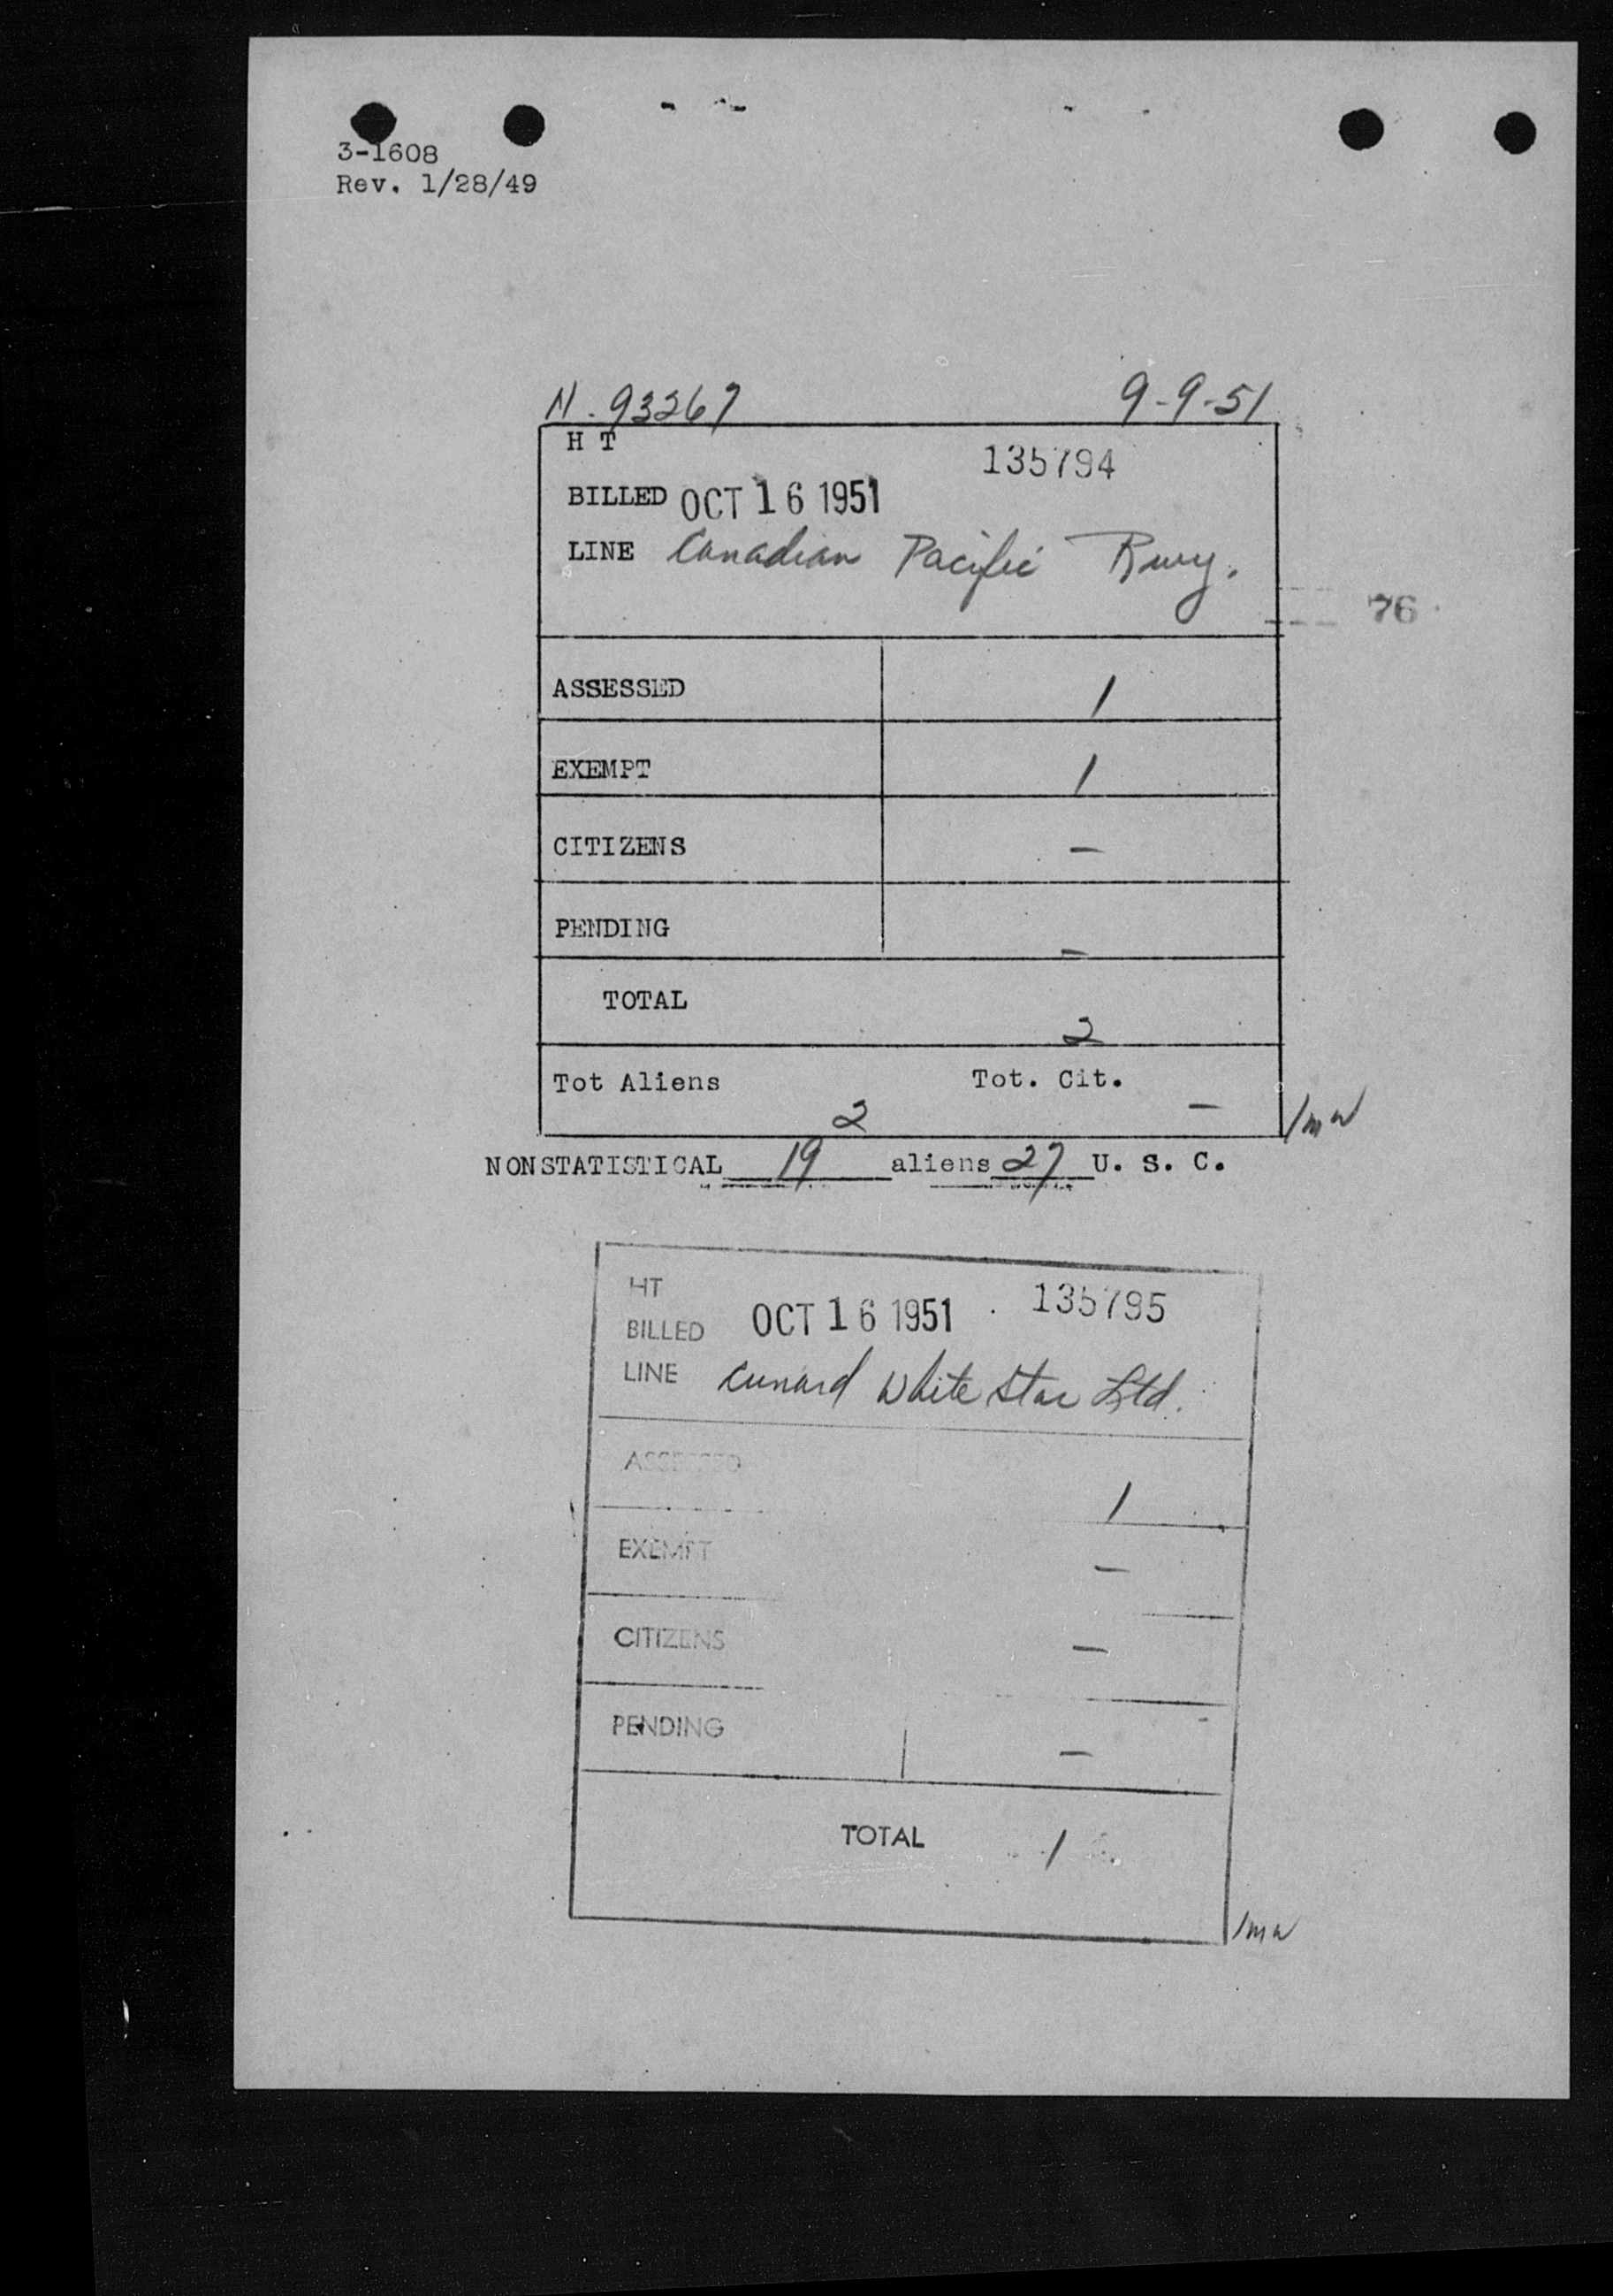 3-1608
Rev. 1/28/49
N-93267 9-9-51
H T
135794
BILLED OCT 16 1951
LINE Canadian Pacific Rwy.
76
ASSESSED 1
EXEMPT 1
CITIZENS -
PENDING -
TOTAL 2
Tot Aliens 2 Tot. Cit. -
NONSTATISTICAL 19 aliens 27 U. S. C.
HT
BILLED OCT 16 1951 135795
LINE Cunard White Star Ltd.
ASSESSED 1
EXEMPT -
CITIZENS -
PENDING -
TOTAL 1